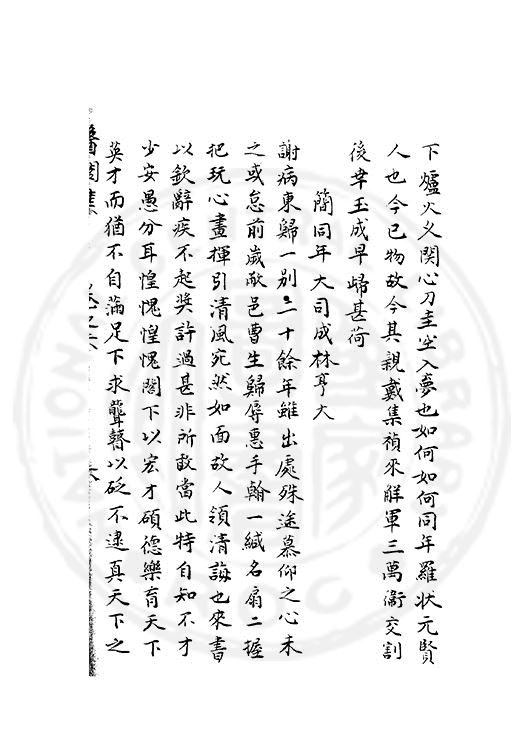 下爐火乂関心刀圭空入夢也如何如何同年羅状元賢
人也今已物故今其親戴集禎來觧軍三萬衞交割
後幸玉成早歸甚荷
簡同年大司成林亨大
謝病東歸一别二十餘年雖出處殊途慕仰之心未
之或怠前歲敝邑曹生歸辱惠手翰一緘名扇二握
把玩心畫揮引清風宛然如面故人領清誨也來書
以欽辭疾不起奬許過甚非所敢當此特自知不才
少安愚分耳惶愧惶愧閤下以宏才碩德樂育天下
英才而猶不自滿足下求聾瞽以砭不逮真天下之
醫閭集 卷之六